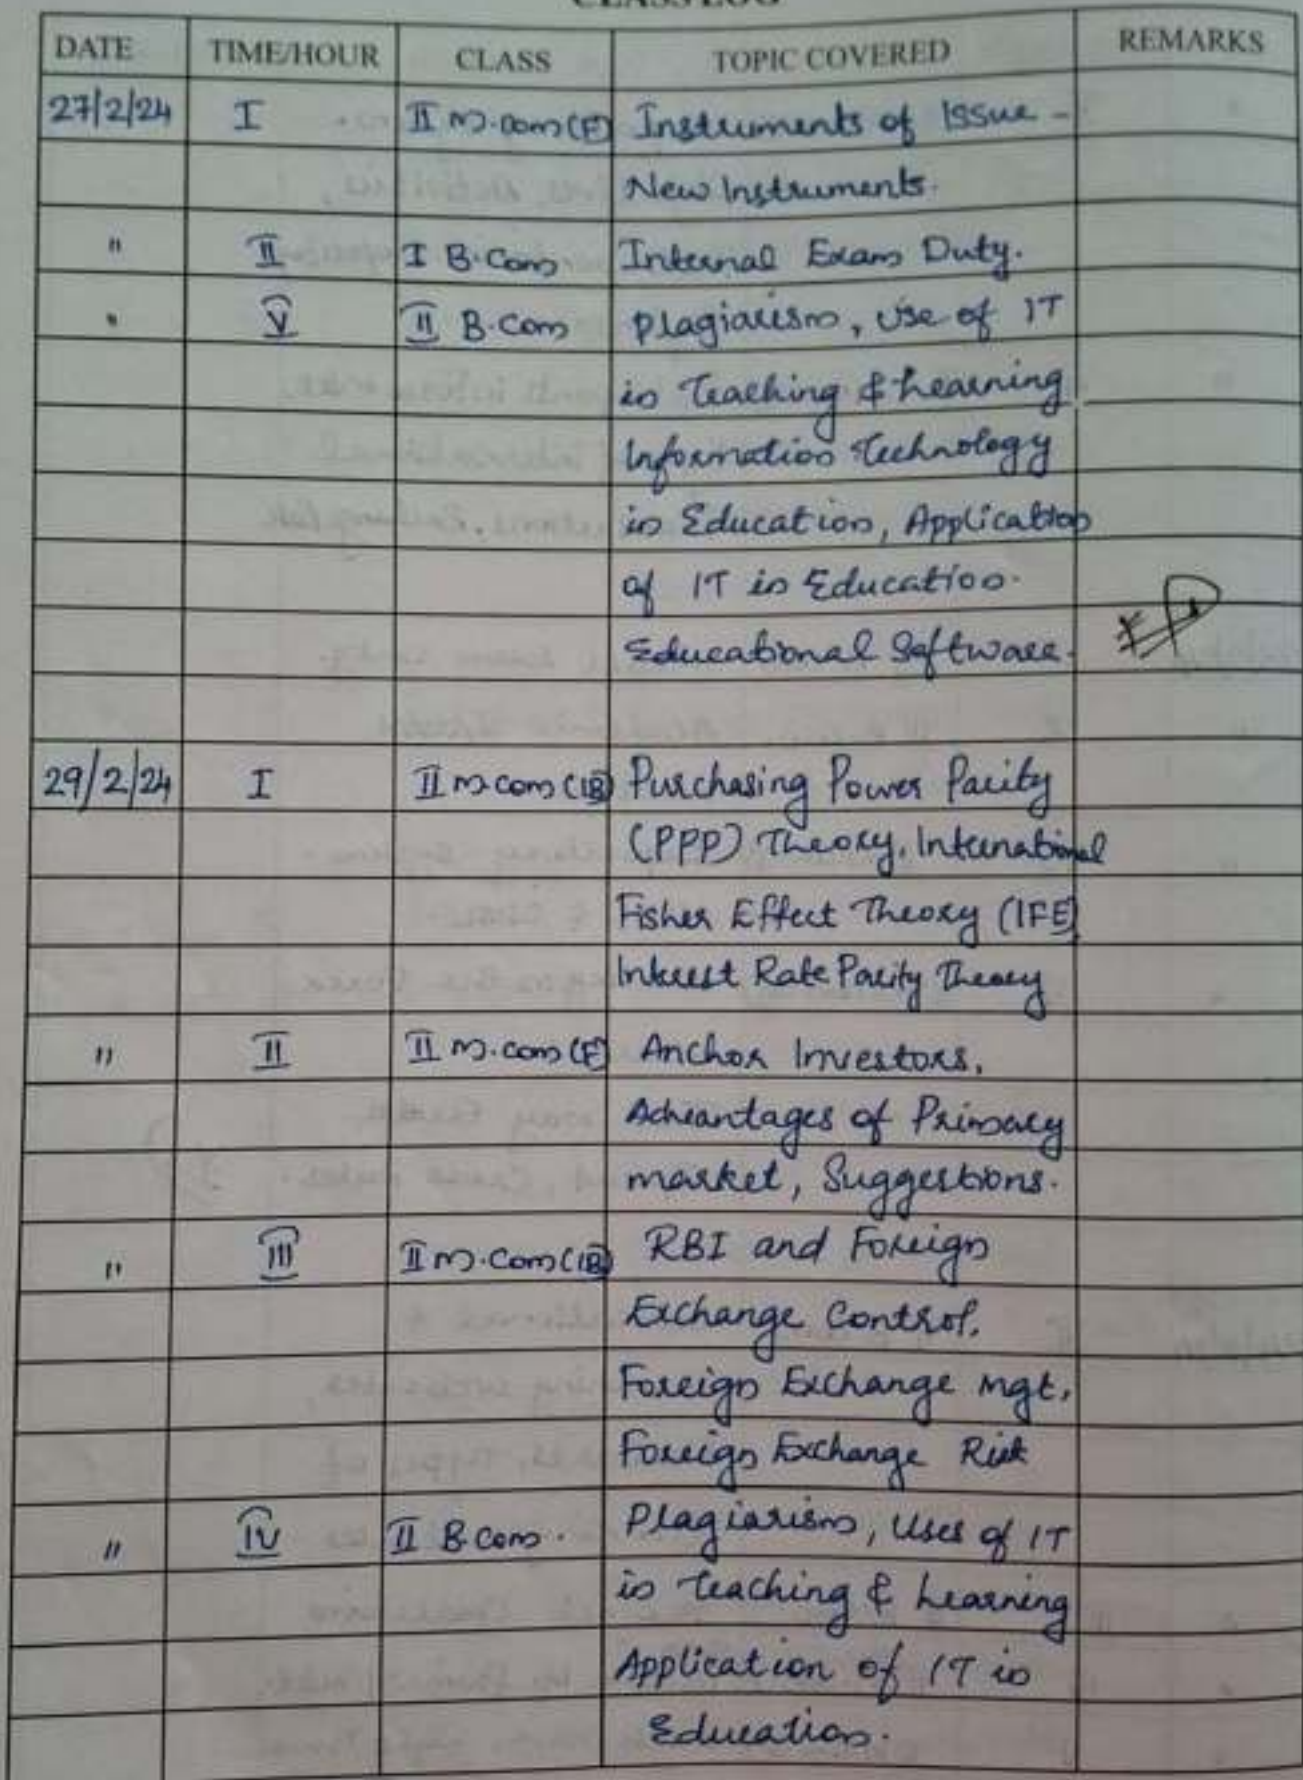 CLASS LOG
DATE TIME/HOUR CLASS TOPIC COVERED REMARKS
27/2/24 I II M.Com(F) Instruments of Issue -
New Instruments.
" II I B.Com Internal Exam Duty.
" V II B.Com Plagiarism, Use of IT
in Teaching & Learning
Information Technology
in Education, Application
of IT in Education.
Educational Software.
29/2/24 I II M.Com (IB) Purchasing Power Parity
(PPP) Theory, International
Fisher Effect Theory (IFE)
Interest Rate Parity Theory
" II II M.Com (F) Anchor Investors,
Advantages of Primary
market, Suggestions.
" III II M.Com (IB) RBI and Foreign
Exchange Control,
Foreign Exchange Mgt,
Foreign Exchange Risk
" IV II B.Com. Plagiarism, Uses of IT
in Teaching & Learning
Application of IT in
Education.